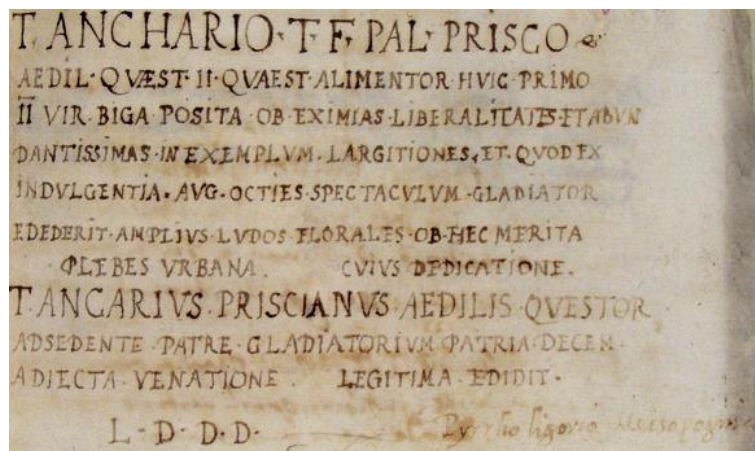 T. ANCHARIO · T · F · PAL · PRISCO
AEDIL · QVÆST · II · QVAEST · ALIMENTOR · HVIC · PRIMO
II VIR · BIGA POSITA · OB · EXIMIAS · LIBERALITATES · ET ABVN
DANTISSIMAS · IN EXEMPLVM · LARGITIONES · ET · QVOD EX
INDVLGENTIA · AVG · OCTIES · SPECTACVLVM · GLADIATOR
EDEDERIT · AMPLIVS · LVDOS · FLORALES · OB · HEC MERITA
PLEBES VRBANA. CVIVS DEDICATIONE.
T ANCARIVS · PRISCIANVS · AEDILIS · QVESTOR
ADSEDENTE · PATRE · GLADIATORIVM · PATRIA · DECEM
ADIECTA · VENATIONE. LEGITIMA · EDIDIT ·
L · D · D · D ·
Pyrrho ligorio